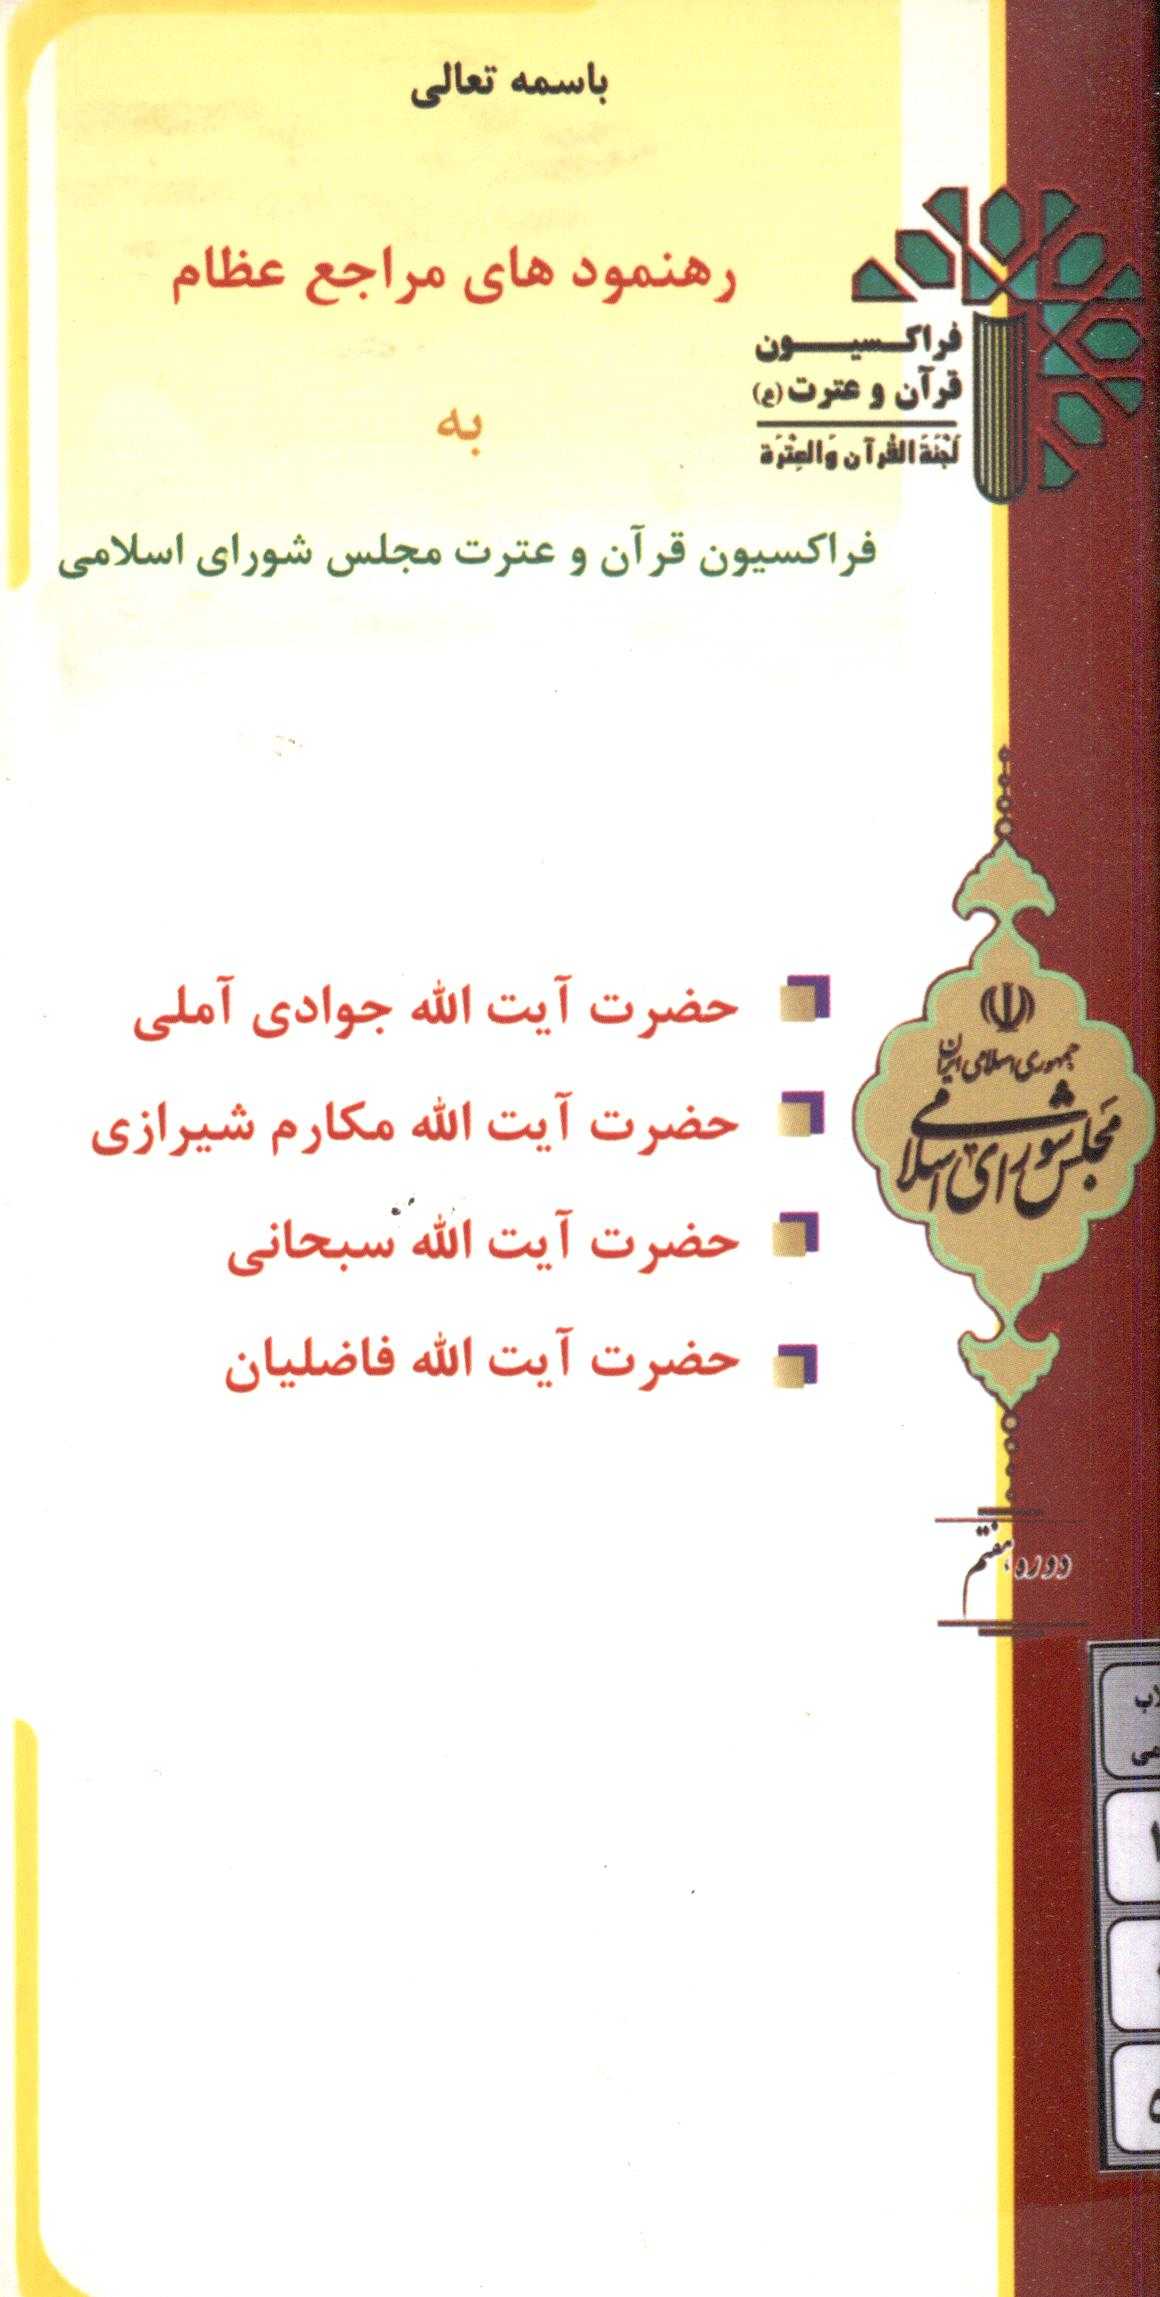 باسمه تعالی
رهنمود های مراجع عظام
به
فراکسیون قرآن و عترت مجلس شورای اسلامی
فراکسیون
قرآن و عترت (ع)
لَجْنَةَ القُرآن وَالعِتْرَة
حضرت آیت الله جوادی آملی
حضرت آیت الله مکارم شیرازی
حضرت آیت الله سبحانی
حضرت آیت الله فاضلیان
جمهوری اسلامی ایران
مجلس شورای اسلامی
دوره هفتم